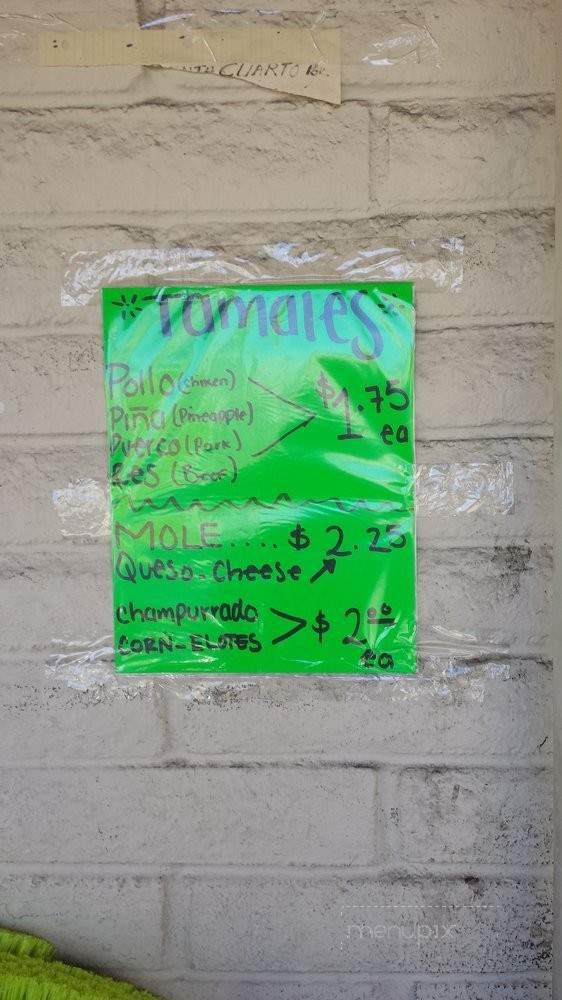 CUARTO
*Tamales*
Pollo (chiken)
Piña (Pineapple)
Puerco (Pork)
Res (Beef)
$1.75
ea
MOLE.... $ 2.25
Queso-Cheese
champurrado
CORN-ELOTES
> $ 2.00
ea
menupix